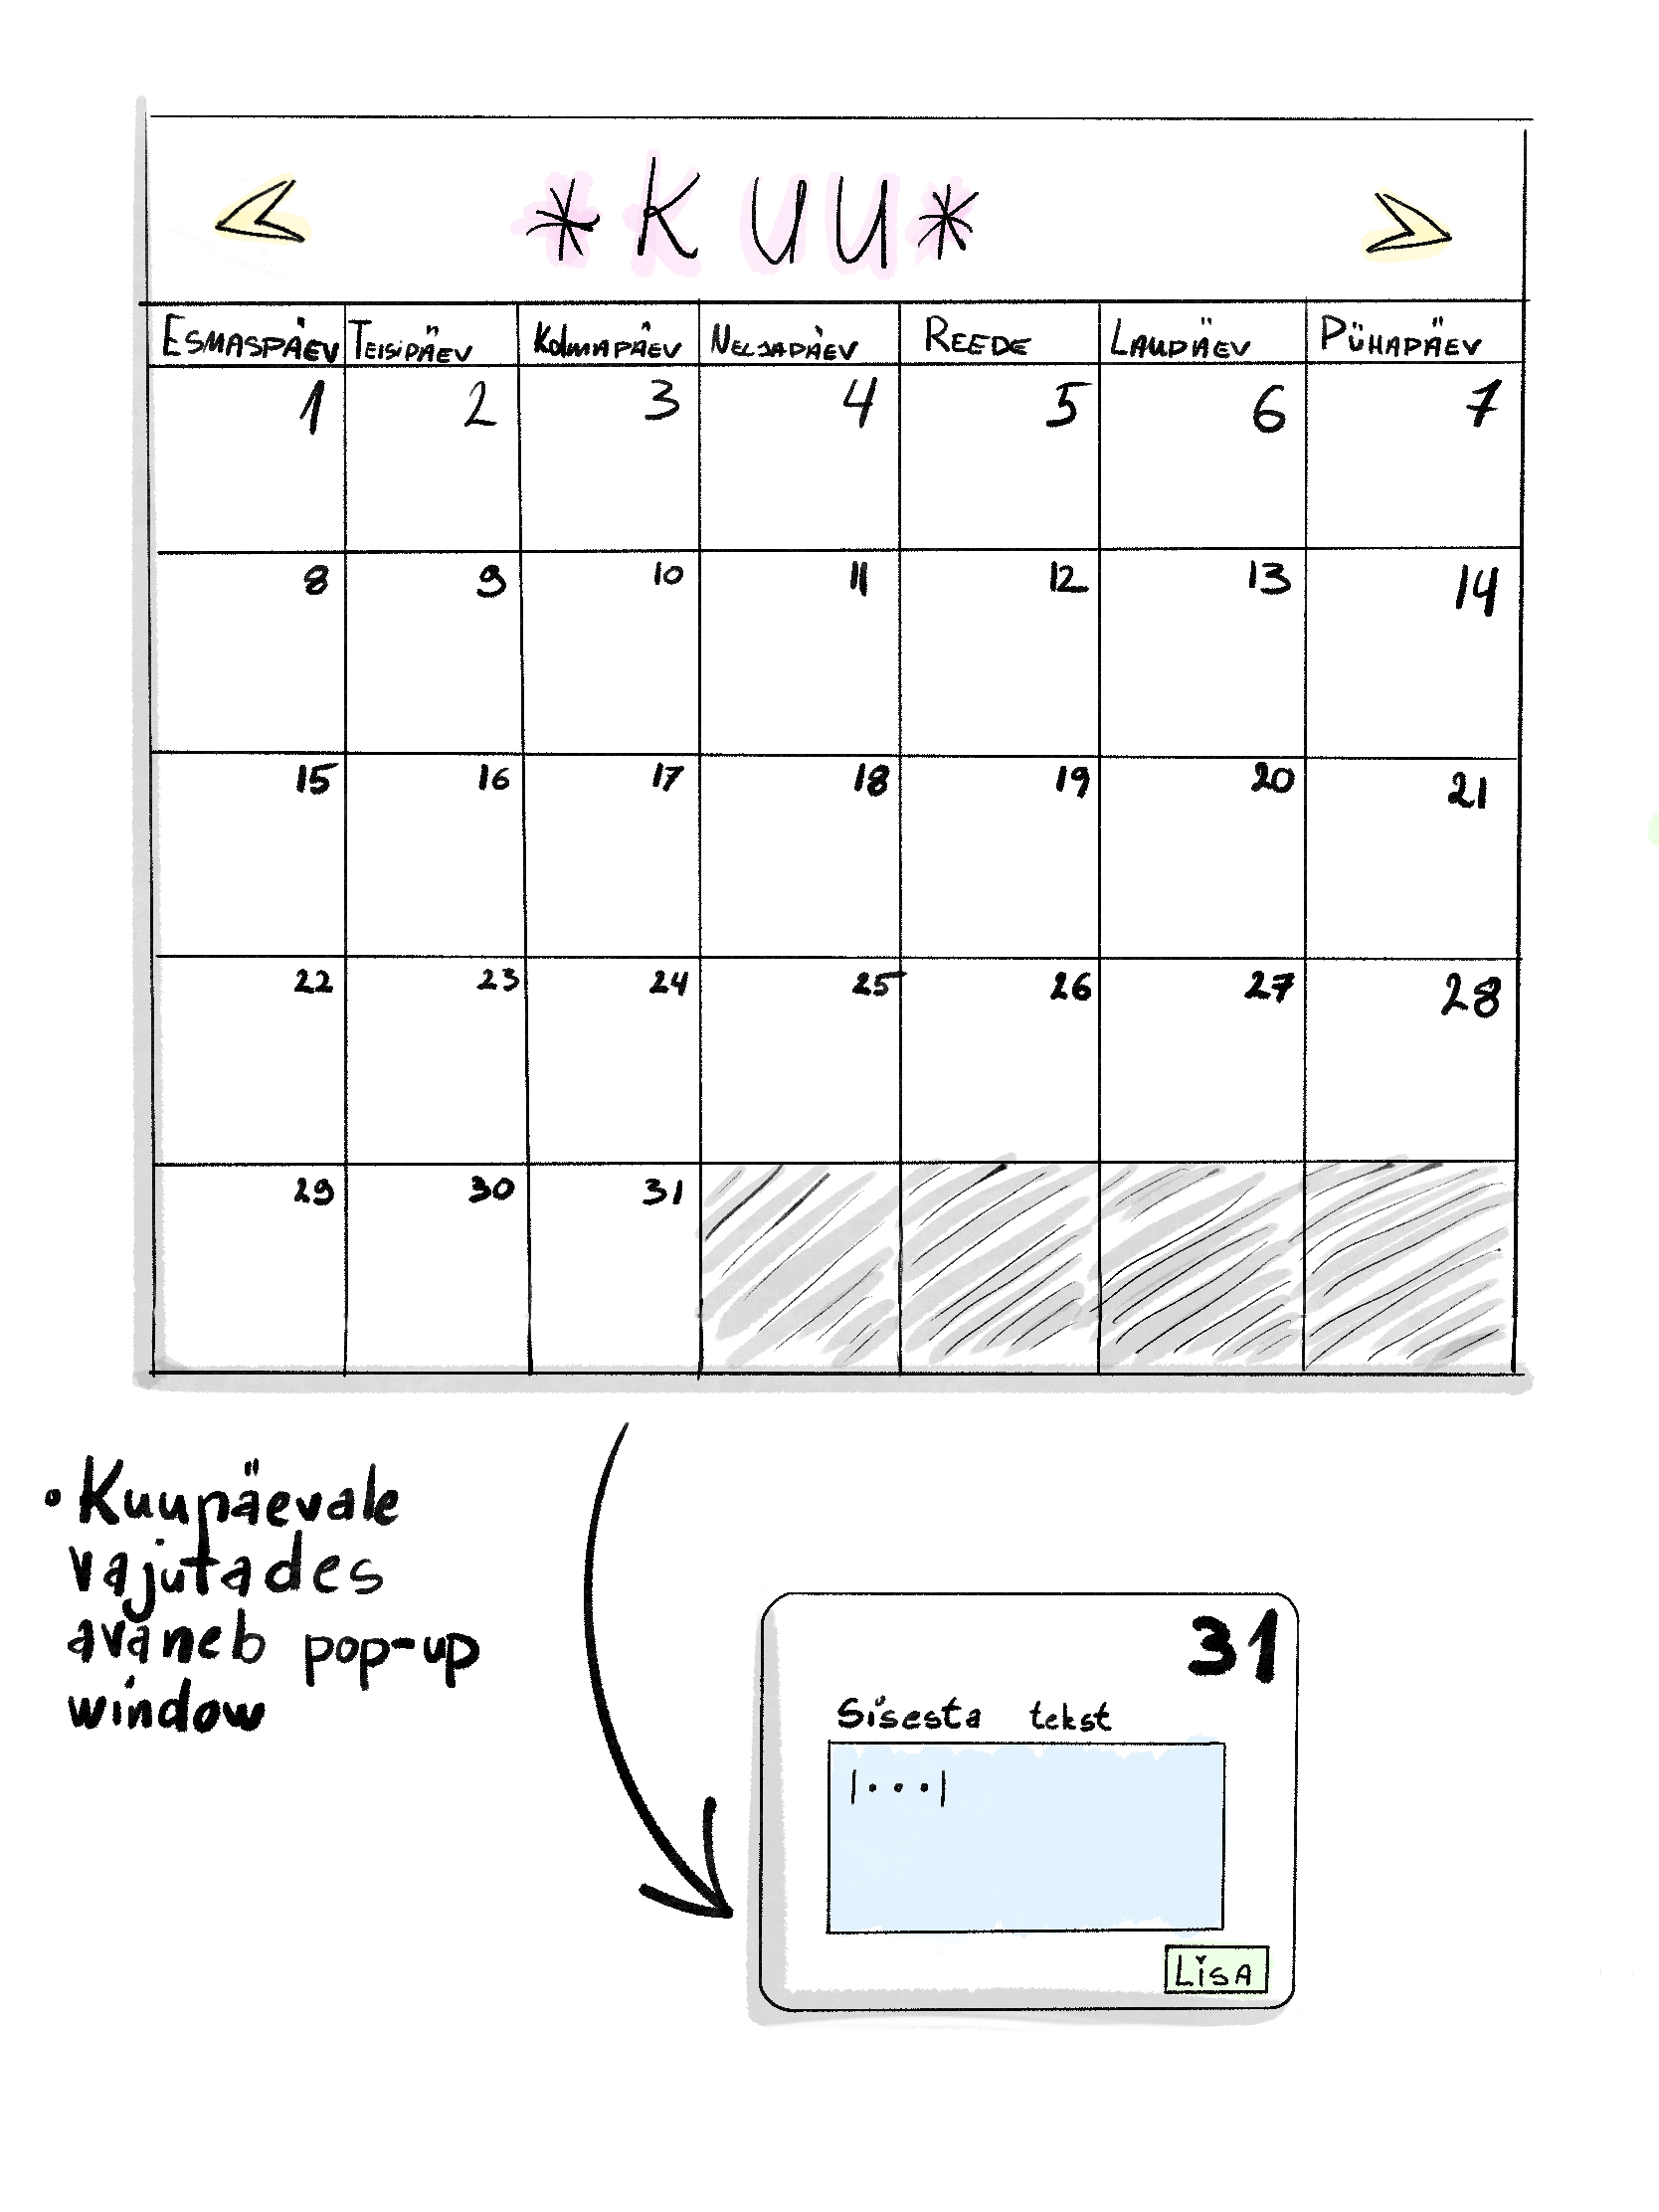 *KUU*
ESMASPÄEV TEISIPÄEV KOLMAPÄEV NELJAPÄEV REEDE LAUPÄEV PÜHAPÄEV
1 2 3 4 5 6 7
8 9 10 11 12 13 14
15 16 17 18 19 20 21
22 23 24 25 26 27 28
29 30 31
• Kuupäevale
vajutades
avaneb pop-up
window
31
Sisesta tekst
|...|
LISA